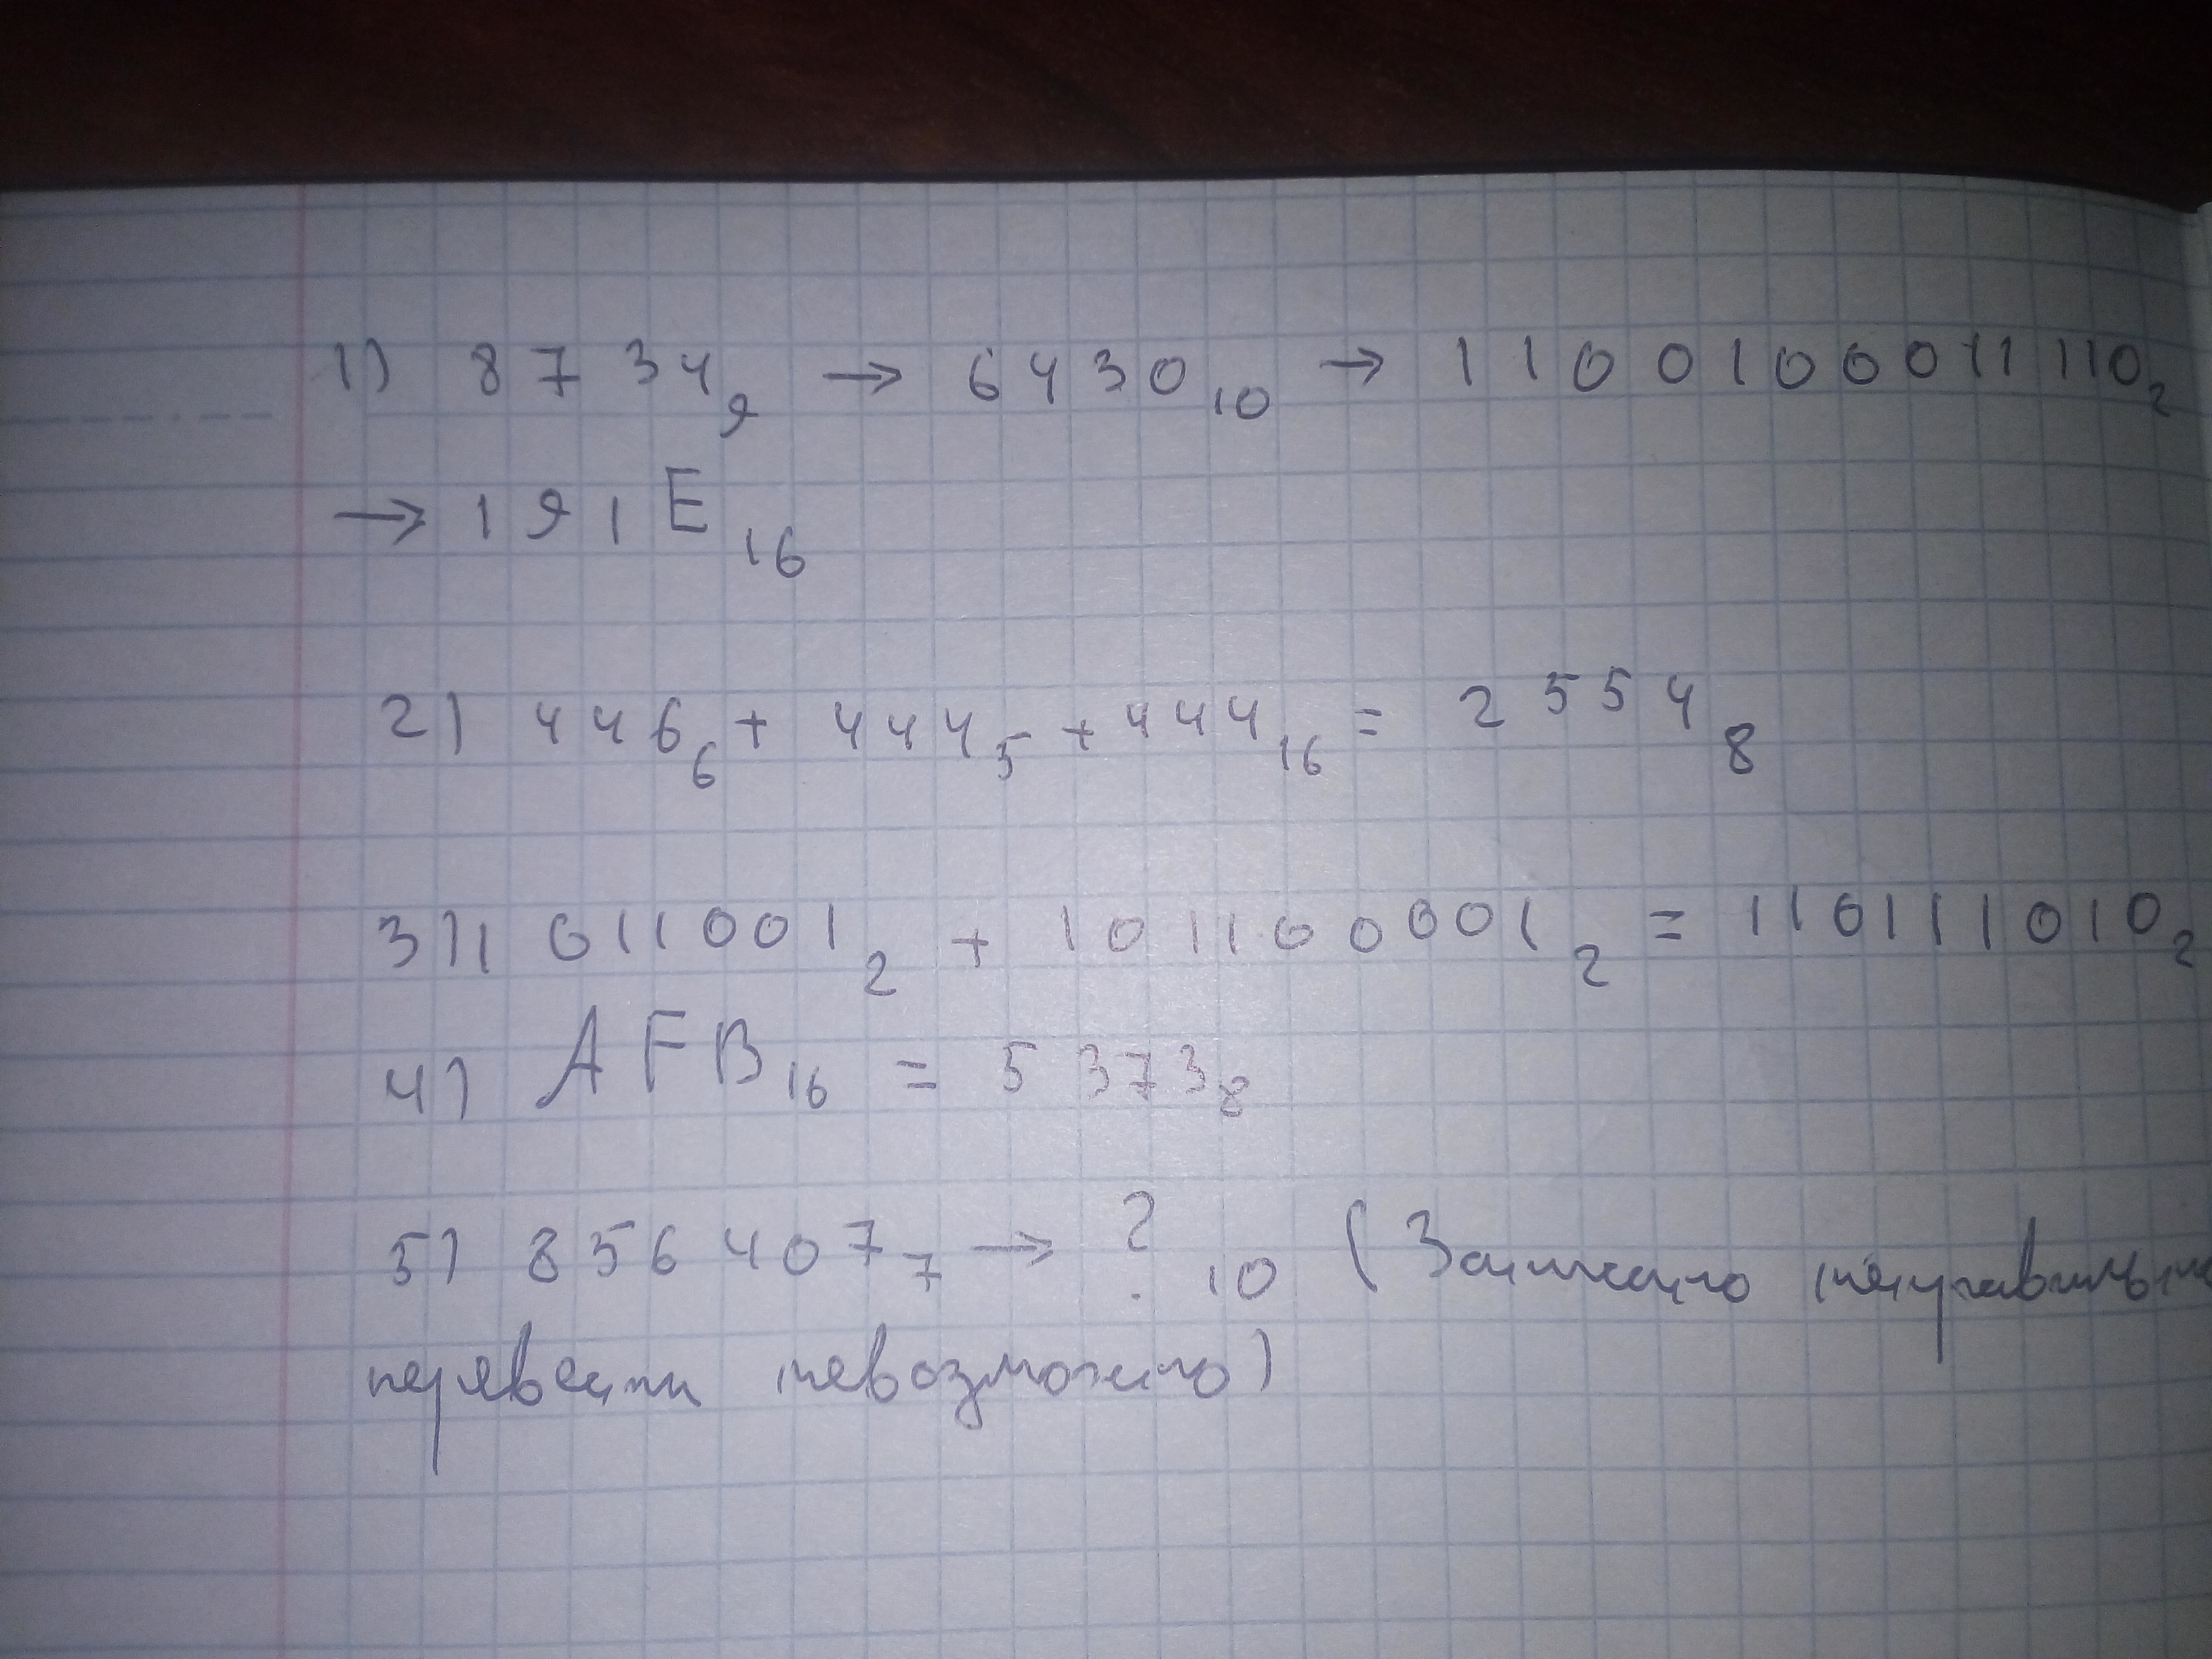 1) 8734₉ → 6430₁₀ → 1100100011110₂
→ 191E₁₆
2) 446₆ + 444₅ + 444₁₆ = 2554₈
3) 1011001₂ + 101100001₂ = 110111010₂
4) AFB₁₆ = 5373₈
5) 856407₇ → ?₁₀ (Записано неправильно
перевести невозможно)